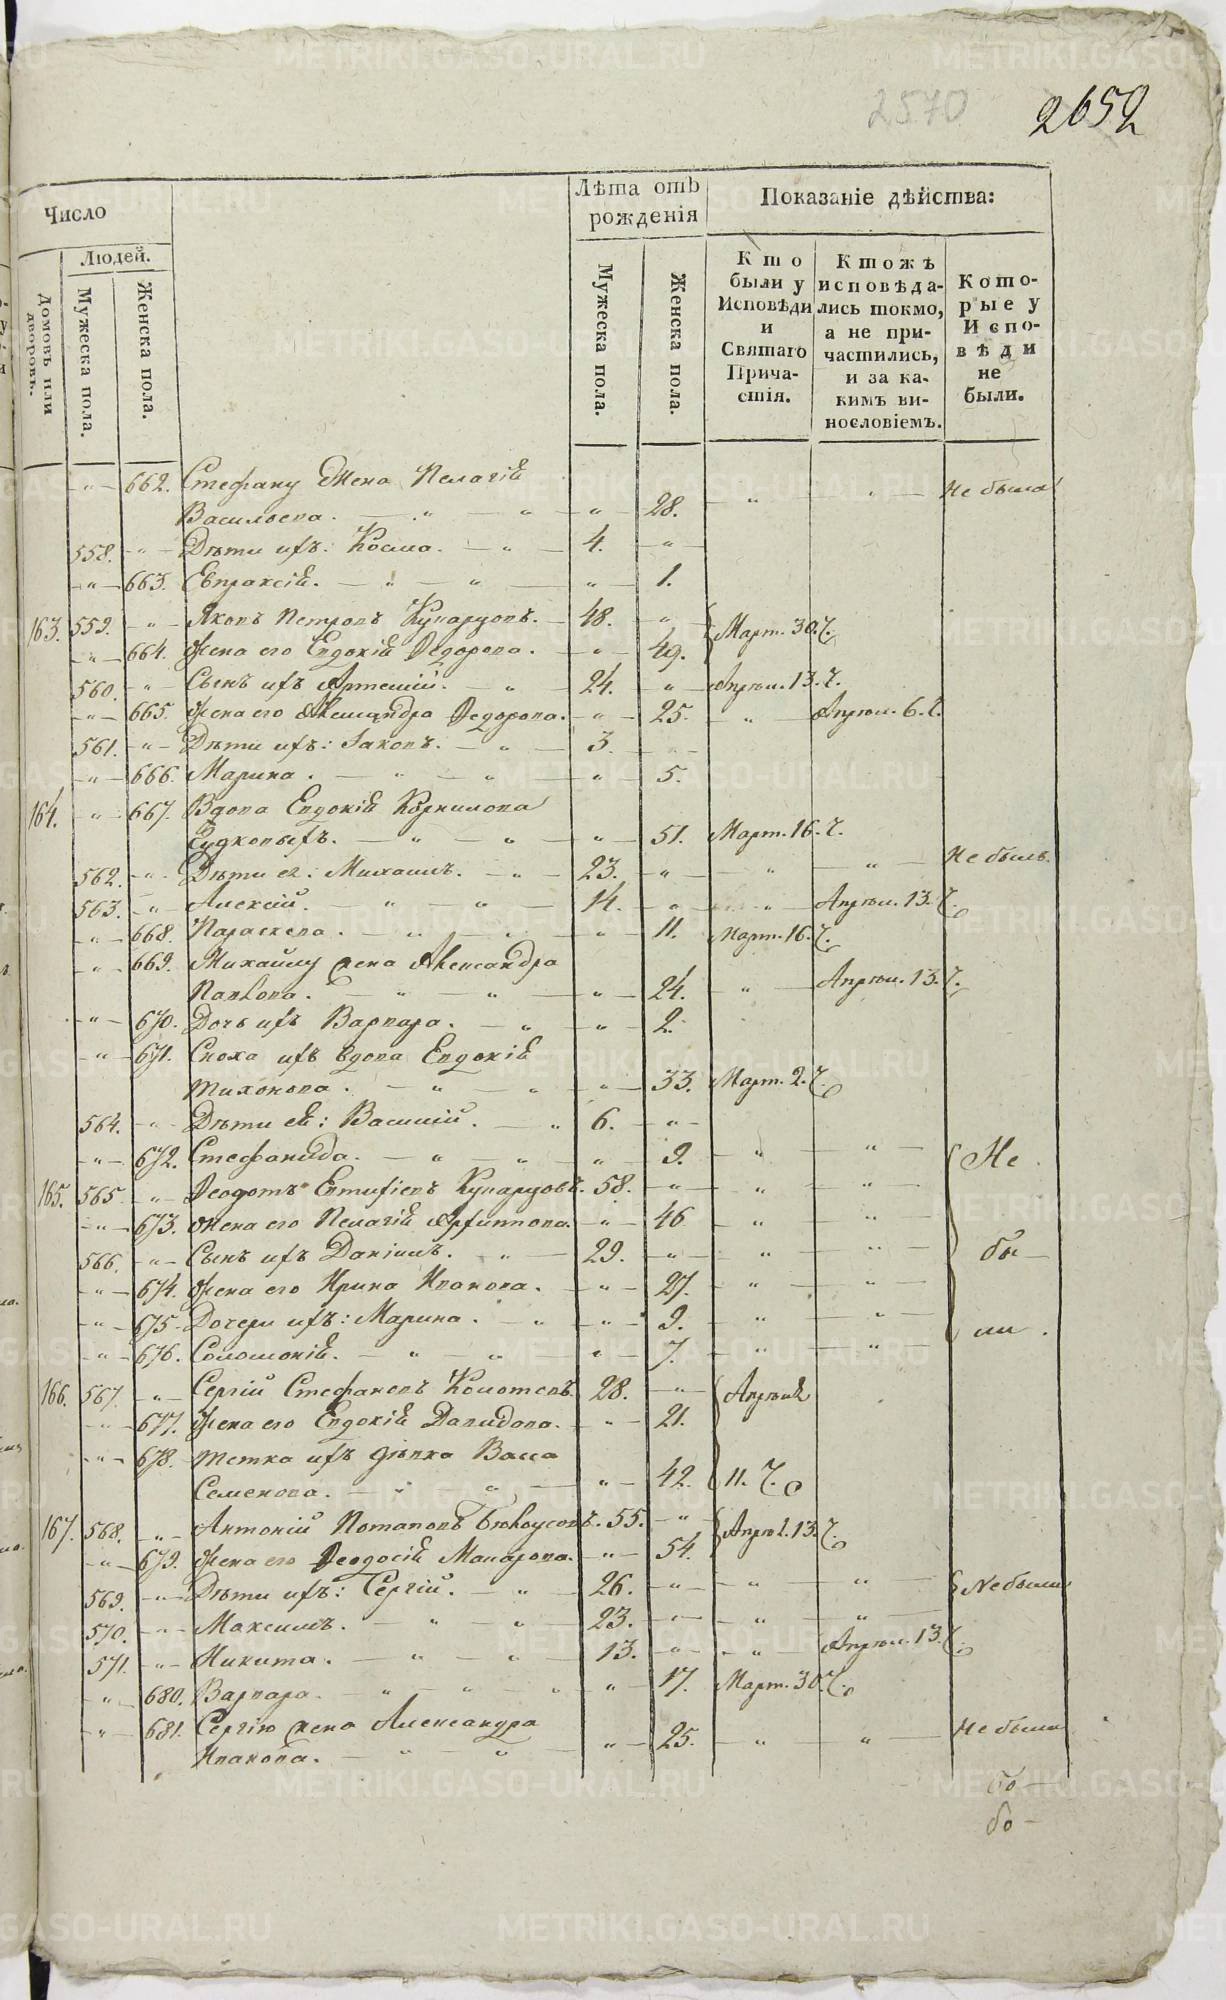 2570 2652
Число
Людей.
Домовъ или дворовъ.
Мужеска пола.
Женска пола.
Лѣта отъ рожденія
Мужеска пола.
Женска пола.
Показаніе дѣйства:
Кто были у Исповѣди и Святаго Причастія.
Ктожъ исповѣдались токмо, а не причастились, и за какимъ винословіемъ.
Которые у Исповѣди не были.
-"- 662. Стефану жена Пелагія
Васильева. - " - " - 28. " " Не была
558. -"- Дѣти ихъ: Косма. - " - 4. -"-
-"- 663. Евпраксія. - " - " - " - 1.
163. 559. -"- Яковъ Петровъ Купарцовъ. - 48. -"- Март. 30. Ч.
-"- 664. Жена его Евдокія Ѳедорова. - " - 49.
560. -"- Сынъ ихъ Артемій. - " - 24. " - Апрѣл. 13. Ч.
-"- 665. Жена его Александра Ѳедорова. - " - 25. - " - Апрѣл. 6. Ч.
561. -"- Дѣти ихъ: Іаковъ. - " - 3. -"-
-"- 666. Марина. - " - " - " - 5.
164. -"- 667. Вдова Евдокія Корнилова
- " - " - " - 51. Март. 16. Ч.
562. -"- Дѣти ея: Михаилъ. - " - 23. -"- " - " - Не былъ.
563. -"- Алексій. - " - " - 14. -"- " Апрѣл. 13. Ч.
-"- 668. Параскева. - " - " - " - 11. Март. 16. Ч.
-"- 669. Михаилу жена Александра
Павлова. - " - " - " - 24. - " - Апрѣл. 13. Ч.
-"- 670. Дочь ихъ Варвара. - " - " - 2.
-"- 671. Сноха ихъ вдова Евдокія
Тихонова. - " - " - " - 33. Март. 2. Ч.
564. -"- Дѣти ея: Василій. - " 6. -"-
-"- 672. Стефанида. - " - " - " - 9. - " - " - Не
165. 565. -"- Ѳеодотъ Евтифіевъ Купарцовъ. 58. -"- " - " -
-"- 673. Жена его Пелагія . - " - 46 - " - " -
566. -"- Сынъ ихъ Даніилъ. - " - 29. -"- " - " - бы-
-"- 674. Жена его Ирина Иванова. - " - 27. - " - " -
-"- 675. Дочери ихъ: Марина. - " - " - 9. - " - " -
-"- 676. Соломонія. - " - " - " - 7. - " - " - ли.
166. 567. -"- Сергій Стефановъ 28. -"- Апрѣля
-"- 677. Жена его Евдокія Давидова. - " - 21.
-"- 678. Тетка ихъ дѣвка Васса
Семенова. - " - " - " - 42. 11. Ч.
167. 568. -"- Антоній Потаповъ Бѣлоусовъ. 55. -"- Апрѣл. 13. Ч.
-"- 679. Жена его Ѳеодосія Макарова. - " - 54.
569. -"- Дѣти ихъ: Сергій. - " - 26. -"- " - " - Не были
570. -"- Максимъ. - " - " - 23. -"- " - " -
571. -"- Никита. - " - " - 13. -"- " - Апрѣл. 13. Ч.
-"- 680. Варвара. - " - " - " - 17. Март. 30. Ч.
-"- 681. Сергію жена Александра
Иванова. - " - " - " - 25. - " - " - Не была
бо-
бо-